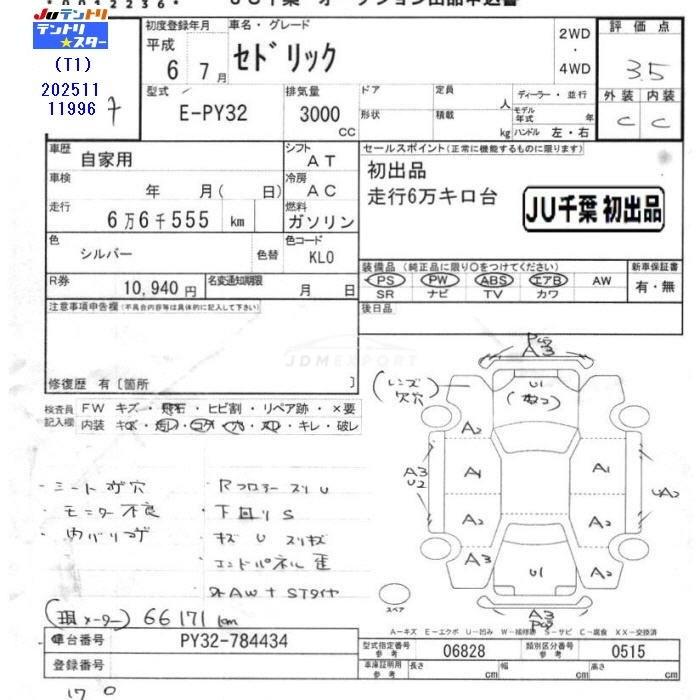 JU千葉 オークション出品申込書
JUテントリ
テントリ★スター
(T1)
202511
11996
初度登録年月
平成
6年 7月
車名・グレード
セドリック
2WD
・
4WD
評価点
3.5
外装 内装
C C
型式
E-PY32
排気量
3000
CC
ドア
形状
定員
人
積載
kg
ディーラー・並行
モデル年式 年
ハンドル 左・右
車歴
自家用
シフト
AT
セールスポイント(正常に機能するものに限ります)
初出品
走行6万キロ台
JU千葉 初出品
車検
年 月( 日)
冷房
AC
走行
6万6千555 km
燃料
ガソリン
色
シルバー
色替
色コード
KL0
装備品 (純正品に限り○をつけてください)
PS PW ABS エアB AW
SR ナビ TV カワ
新車保証書
有・無
R券
10,940円
名変通知期限
月 日
後日品
注意事項申告欄(不具合内容等は具体的に記入して下さい)
JDMEXPORT
修復歴 有〔箇所 〕
検査員
記入欄
FW キズ・飛石・ヒビ割・リペア跡・×要
内装 キズ・汚レ・コゲ・穴・スレ・キレ・破レ
シートコゲ穴
モニター不良
内バリコゲ
Rフロアースリ U
下回りS
キズ U スリキズ
エンドパネル歪
社AW+STタイヤ
(現メーター) 66171 km
(レンズ欠穴)
A3
U1
A2
A3
U2
A1
A1
UA2
A2
A2
A3
U1
A2
A3
スペア
A-キズ E-エクボ U-凹み W-補修跡 S-サビ C-腐食 XX-交換済
車台番号
PY32-784434
型式指定番号
参考
06828
類別区分番号
参考
0515
登録番号
車庫証明用
参考
長さ cm
幅 cm
高さ cm